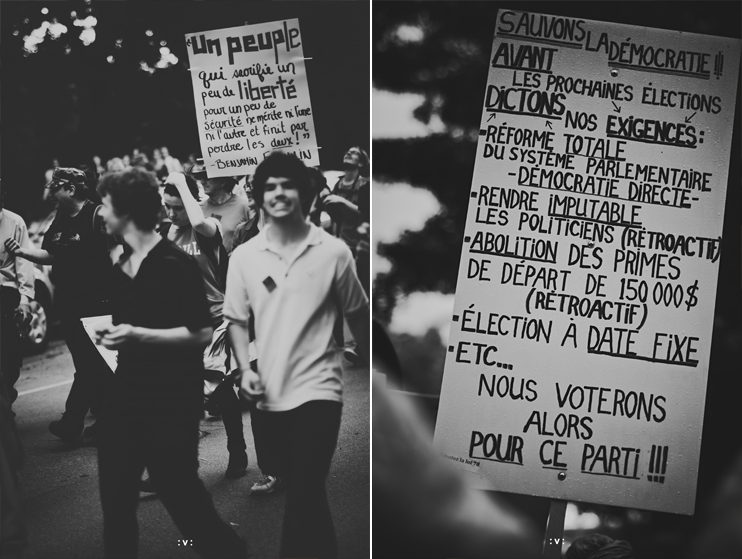 "un peuple
qui sacrifie un
peu de liberté
pour un peu de
sécurité ne mérite ni l'une
ni l'autre et finit par
perdre les deux!"
- BENJAMIN
:v:
SAUVONS LA DÉMOCRATIE!!!
AVANT
LES PROCHAINES ÉLECTIONS
DICTONS NOS EXIGENCES:
▪RÉFORME TOTALE
DU SYSTÈME PARLEMENTAIRE
-DÉMOCRATIE DIRECTE-
▪RENDRE IMPUTABLE
LES POLITICIENS (RÉTROACTIF)
▪ABOLITION DES PRIMES
DE DÉPART DE 150 000$
(RÉTROACTIF)
▪ÉLECTION À DATE FIXE
▪ETC...
NOUS VOTERONS
ALORS
POUR CE PARTI!!!
:v: